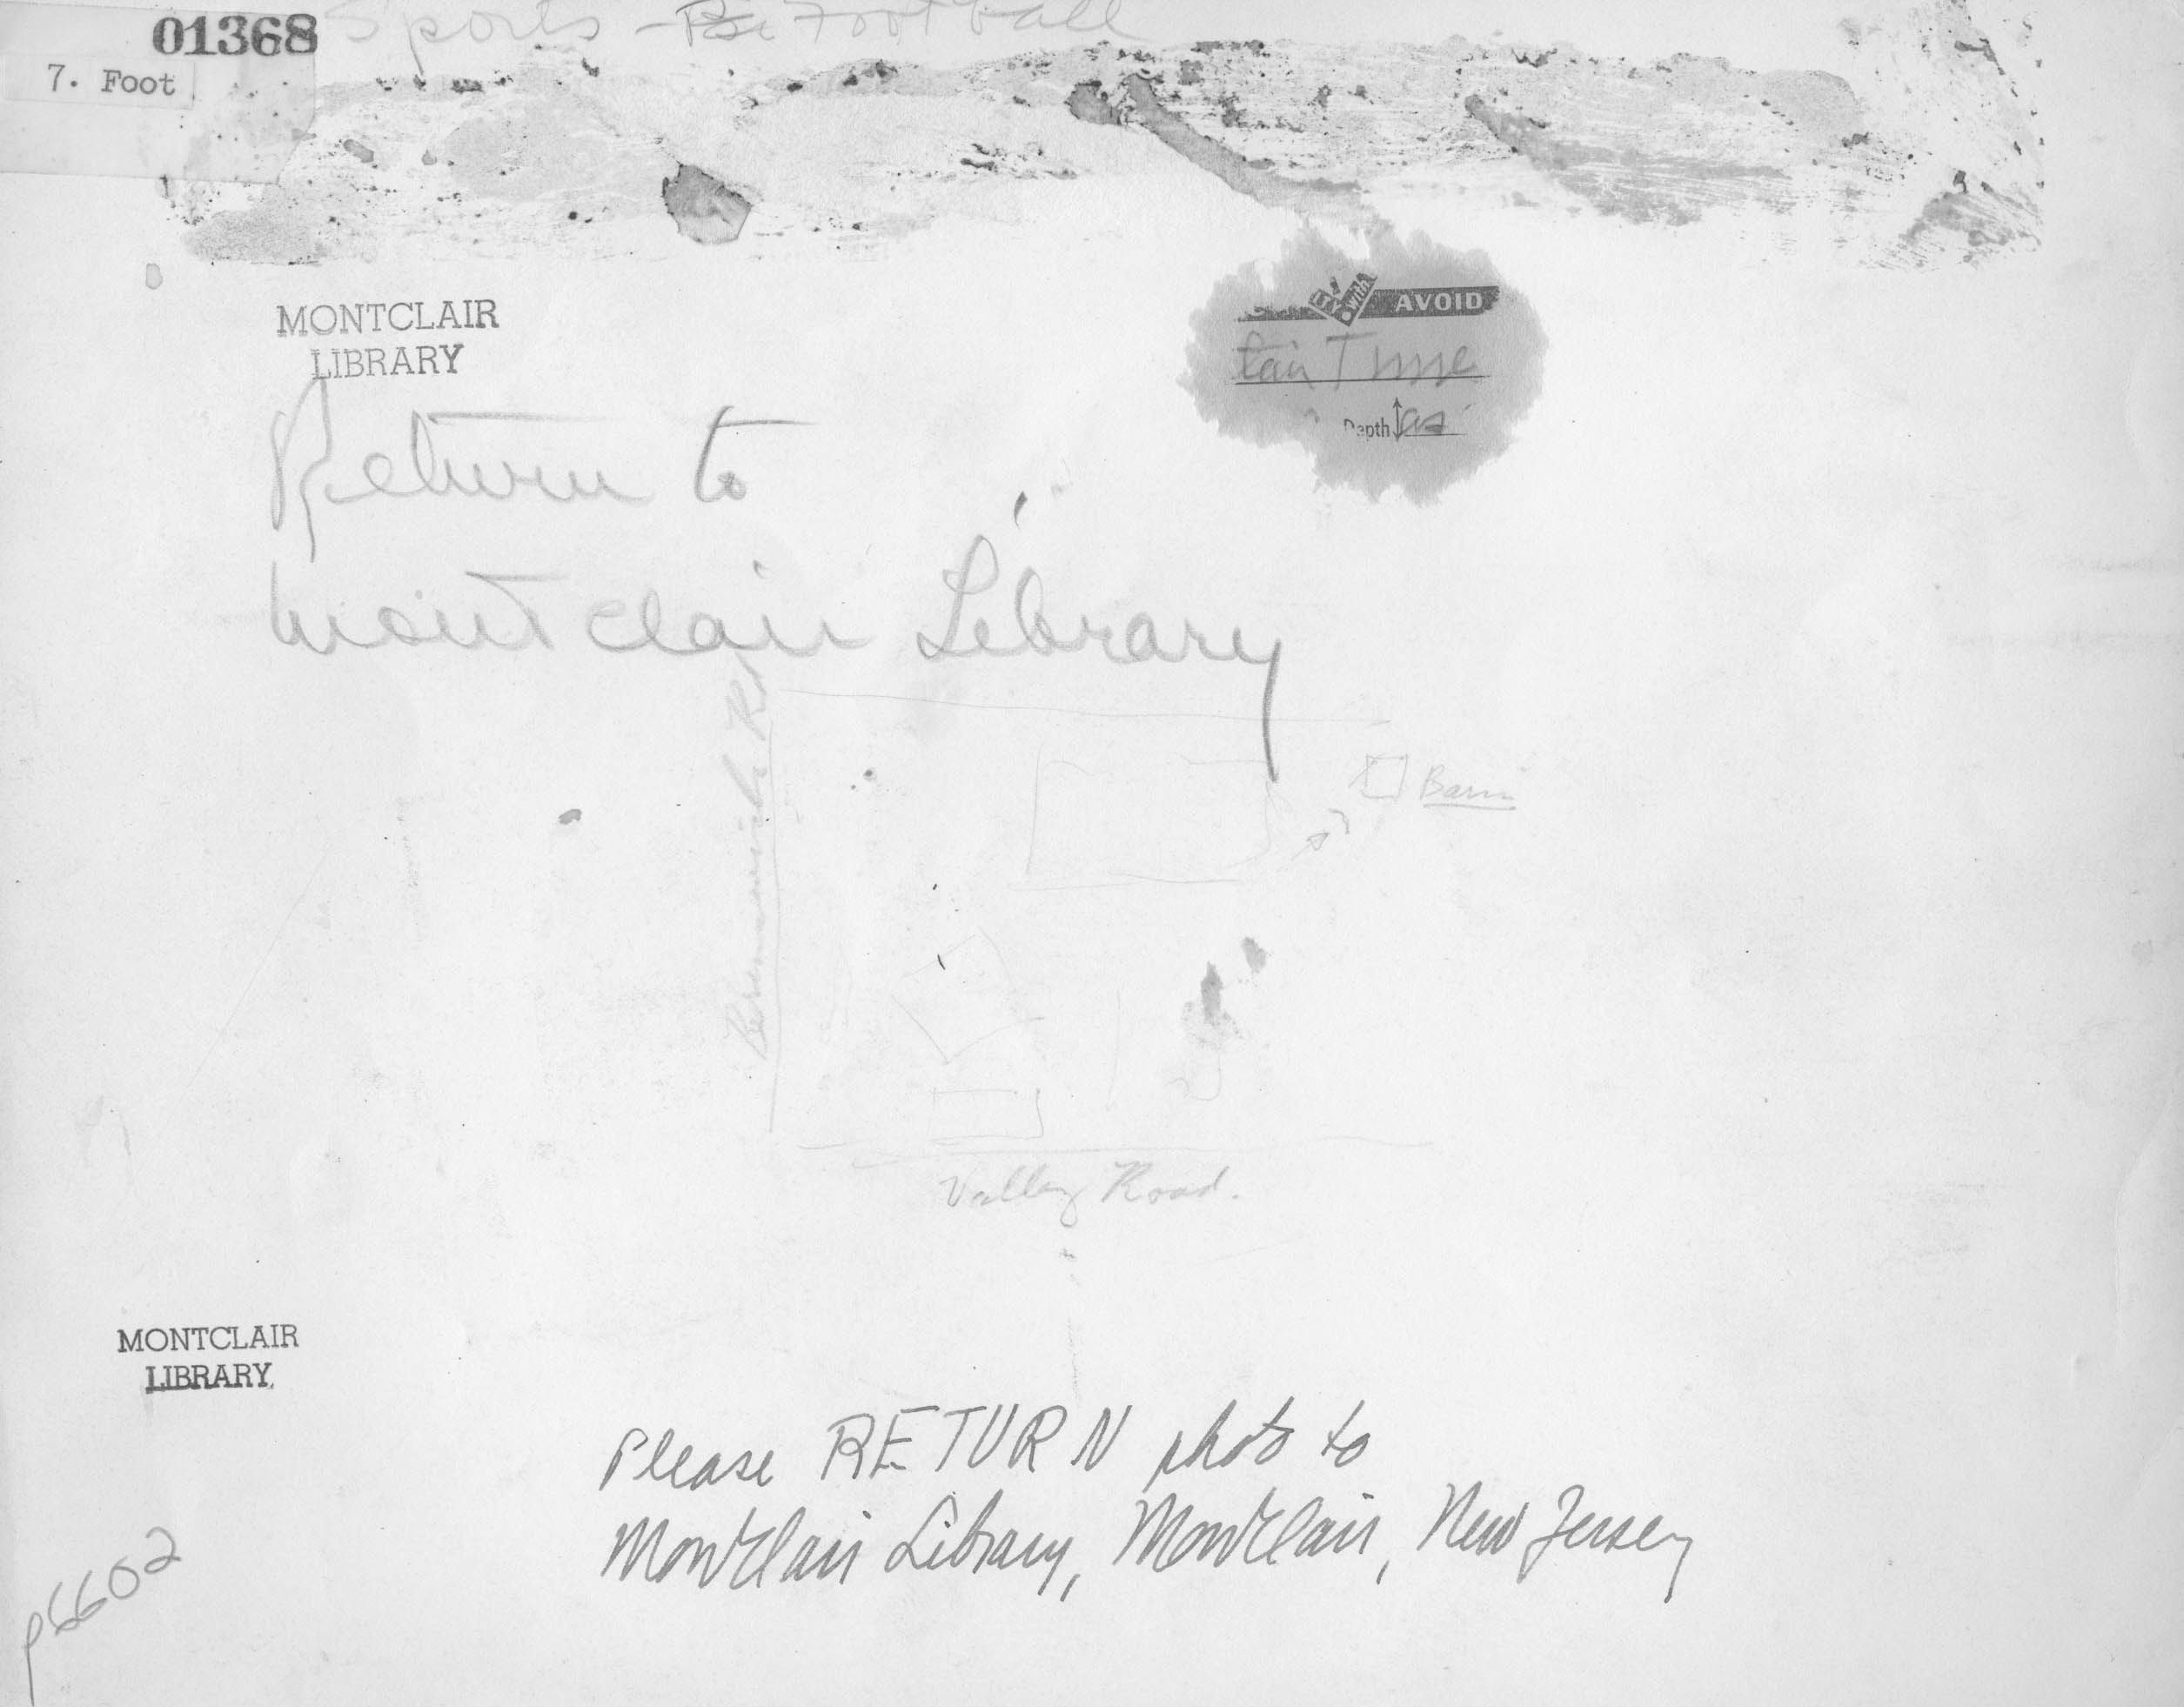 01368
Sports - Football
7. Foot
MONTCLAIR
LIBRARY
with
AVOID
Depth
Return to
Montclair Library
Barn
Valley Road.
MONTCLAIR
LIBRARY
Please RETURN photo to
Montclair Library, Montclair, New Jersey
p6602